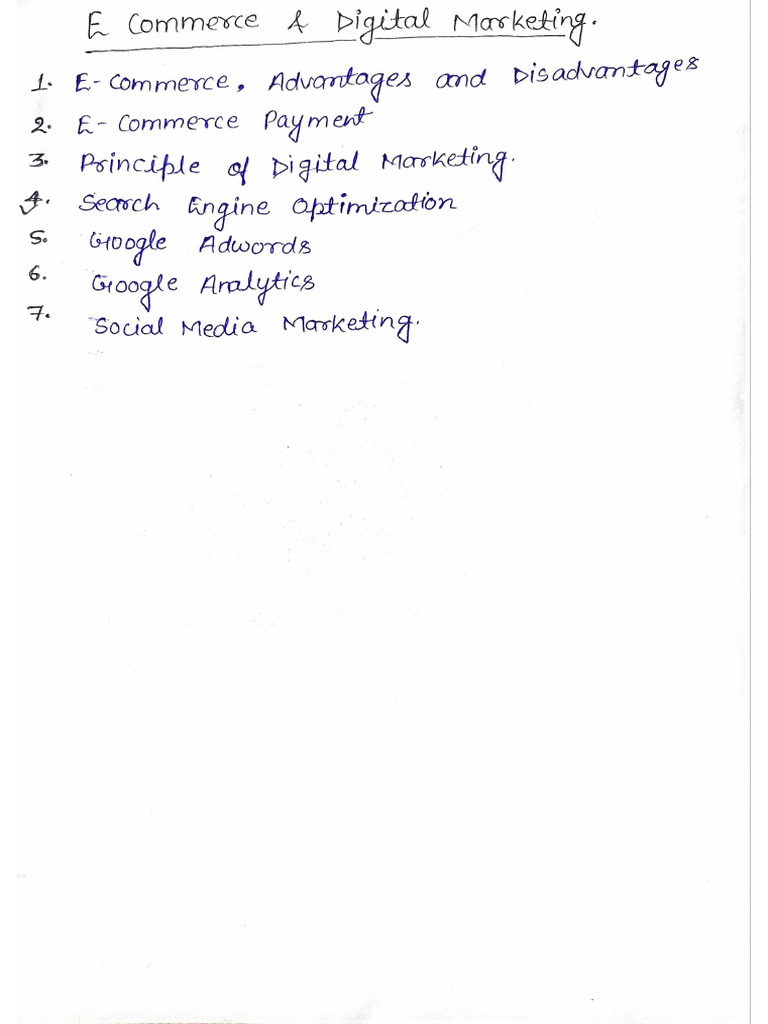 E Commerce & Digital Marketing.
1. E-Commerce, Advantages and Disadvantages
2. E-Commerce Payment
3. Principle of Digital Marketing.
4. Search Engine Optimization
5. Google Adwords
6. Google Analytics
7. Social Media Marketing.